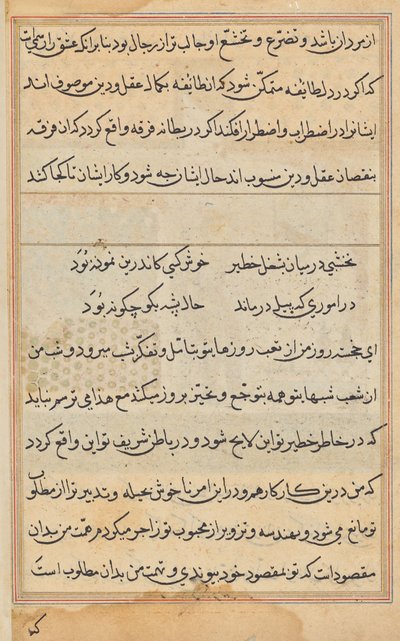 از مردان باشد و تضرّع و تخشّع او جالب تر از رجال بود بنا بر انکه عشق را سریست
که اکر در دل طایفه متمکن شود که ان طایفه بکمال عقل و دین موصوف اند
ایشانرا در اضطراب و اضطرار افکند اکر در بطانه فرقه واقع کردد که ان فرقه
بنقصان عقل و دین منسوب اند حال ایشان چه شود و کار ایشان تا کجا کشد
نخشبی در میان شغل خطیر خوش کسی کاندرین نمونه بُوَد
در اموری که پیل درماند حال پشه بکو چکونه بُوَد
ای خجسته روز من از تعب روزها بتو بتامّل و تفکّر شب میرود و شب من
از شعب شبها بتو همه بتوجّع و تحیّر بروز میکشد مع هذا می ترسم نباید
که در خاطر خطیر تو این لایح شود و در باطن شریف تو این واقع کردد
که من درین کار کارهم و در این امر ناخوش بحیله و تدبیر ترا از مطلوب
تو مانع می شود و بهندسه و تزویر از محبوب تو زاجر میکردم همت من بدان
مقصود است که تو بمقصود خود پیوندی و نهمت من بدان مطلوب است
که